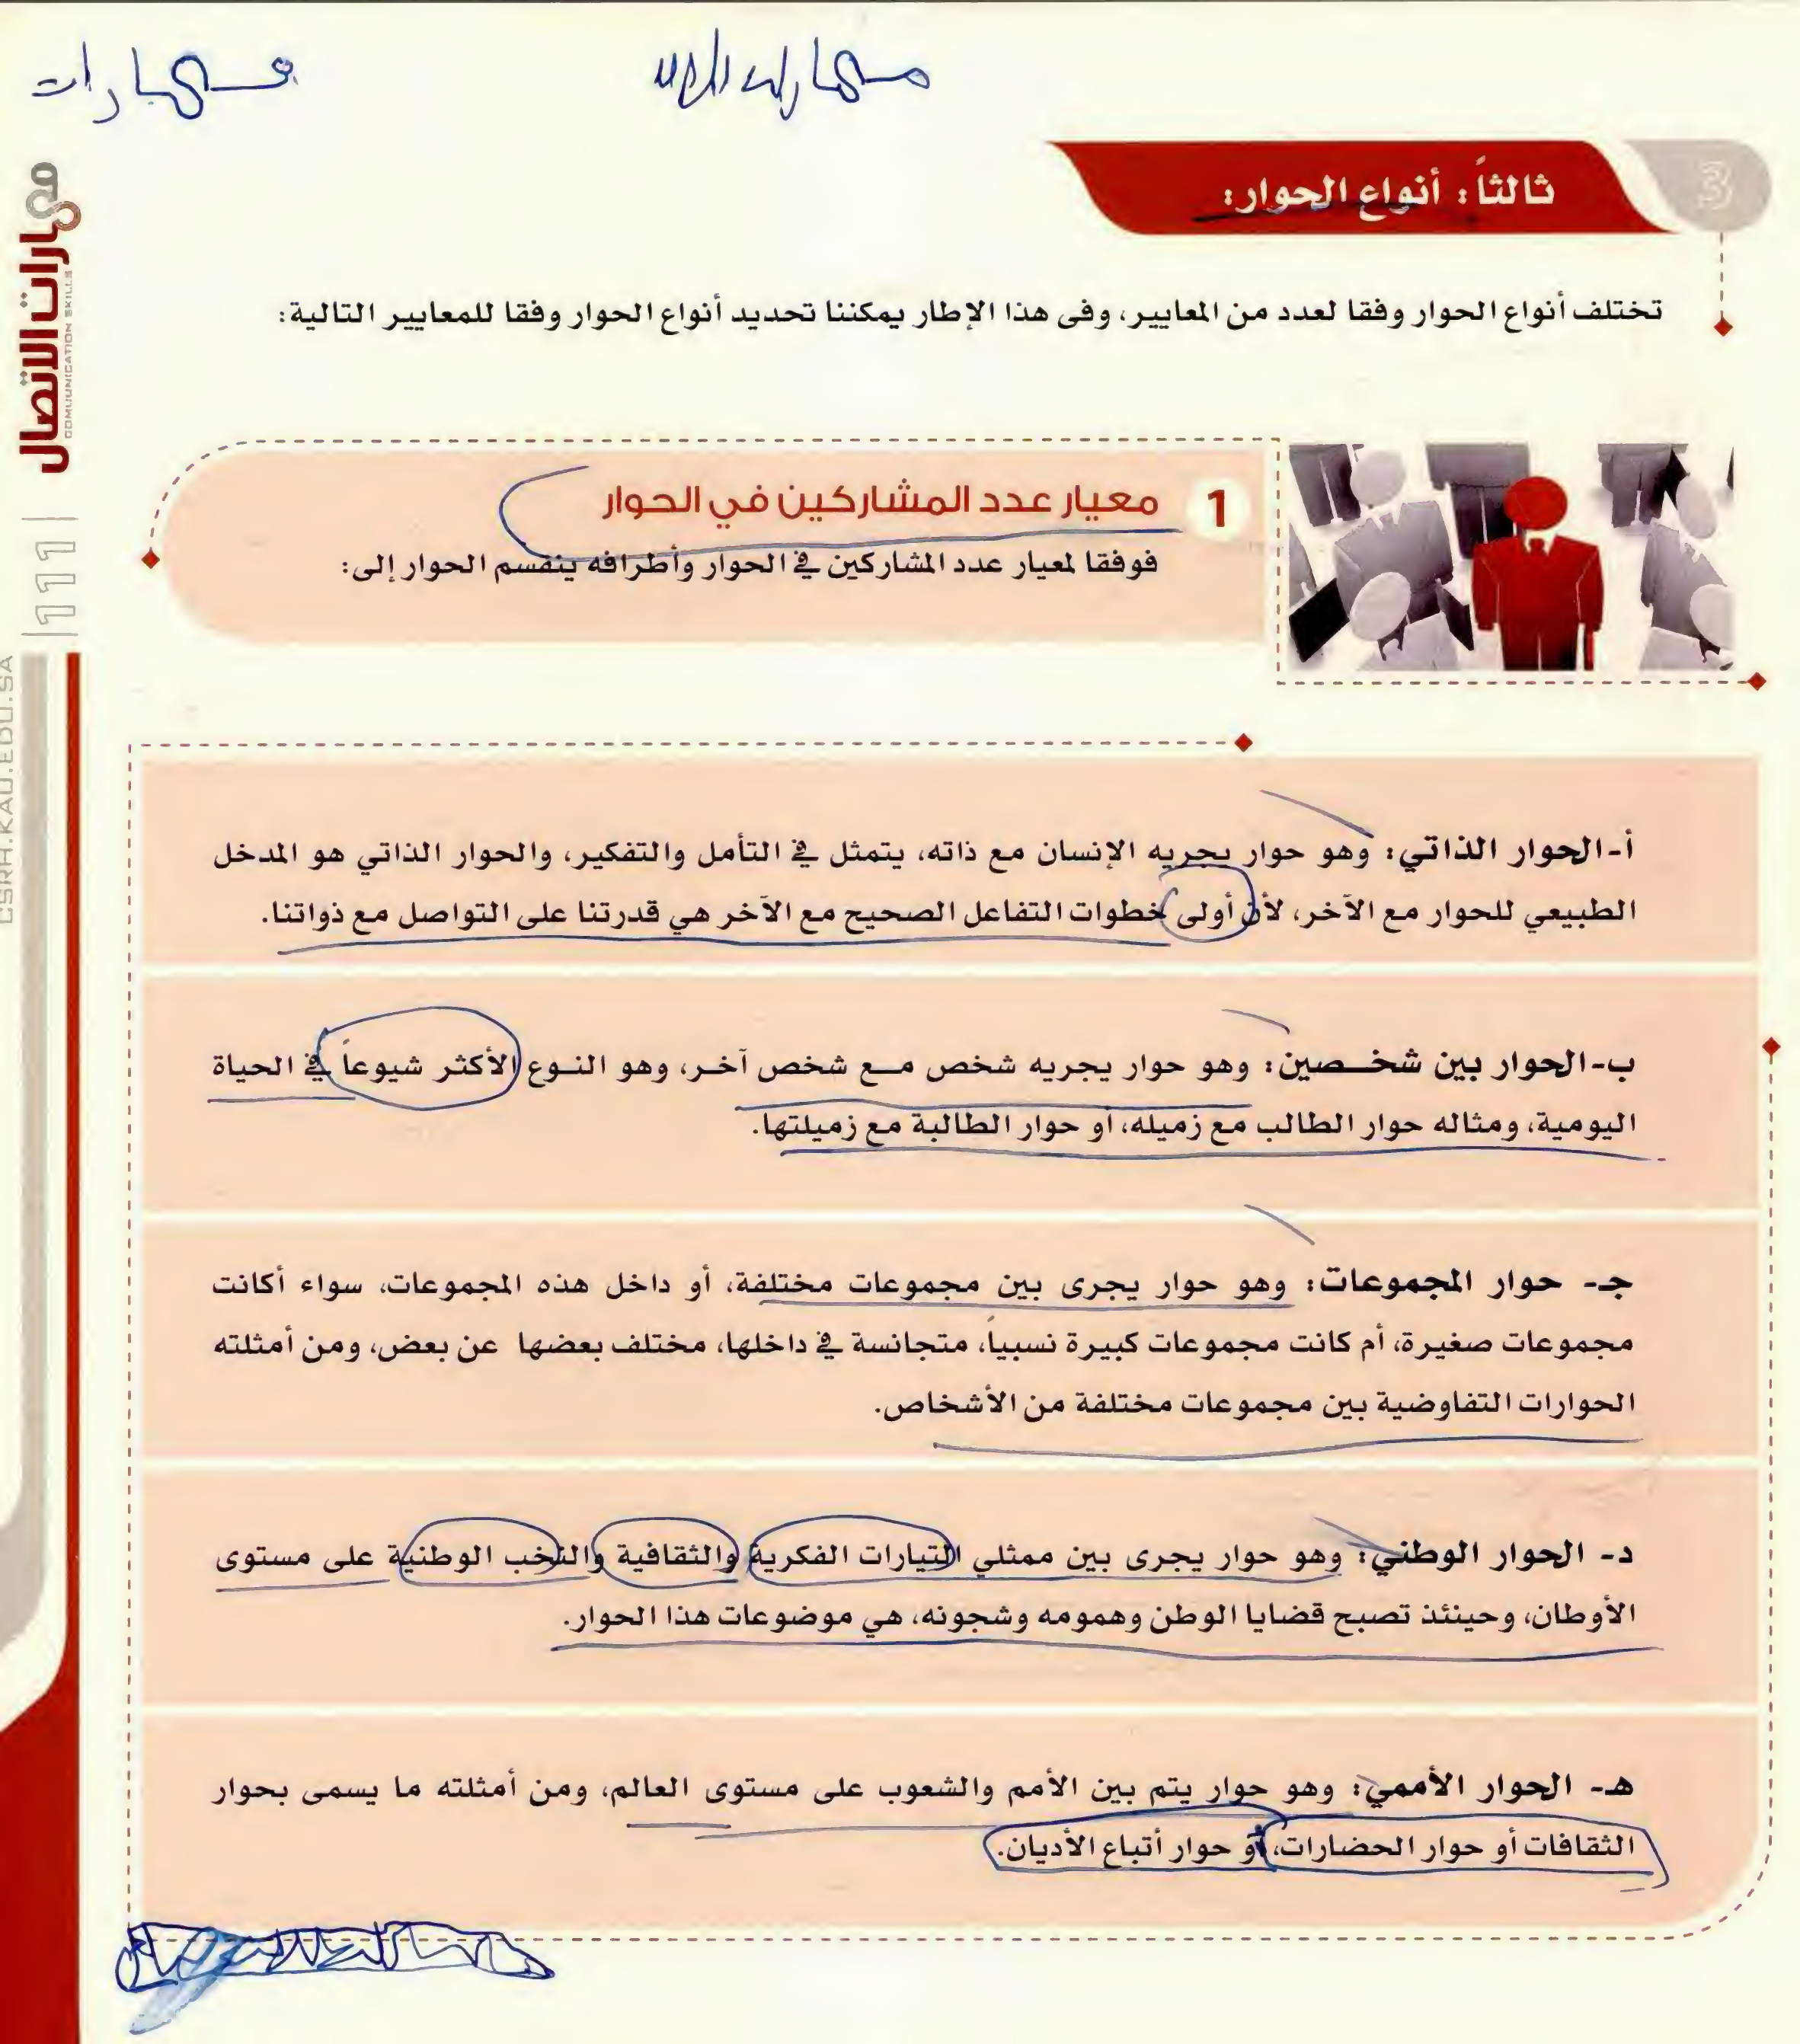 مهارات
ثالثاً: أنواع الحوار:
3
تختلف أنواع الحوار وفقا لعدد من المعايير، وفى هذا الإطار يمكننا تحديد أنواع الحوار وفقا للمعايير التالية:
1 معيار عدد المشاركين في الحوار
فوفقا لمعيار عدد المشاركين في الحوار وأطرافه ينقسم الحوار إلى:
أ-الحوار الذاتي: وهو حوار يجريه الإنسان مع ذاته، يتمثل في التأمل والتفكير، والحوار الذاتي هو المدخل
الطبيعي للحوار مع الآخر، لأن أولى خطوات التفاعل الصحيح مع الآخر هي قدرتنا على التواصل مع ذواتنا.
ب-الحوار بين شخـــصين: وهو حوار يجريه شخص مــع شخص آخـر، وهو النــوع الأكثر شيوعاً في الحياة
اليومية، ومثاله حوار الطالب مع زميله، أو حوار الطالبة مع زميلتها.
جـ- حوار المجموعات: وهو حوار يجرى بين مجموعات مختلفة، أو داخل هذه المجموعات، سواء أكانت
مجموعات صغيرة، أم كانت مجموعات كبيرة نسبياً، متجانسة في داخلها، مختلف بعضها عن بعض، ومن أمثلته
الحوارات التفاوضية بين مجموعات مختلفة من الأشخاص.
د- الحوار الوطني: وهو حوار يجرى بين ممثلي التيارات الفكرية والثقافية والنخب الوطنية على مستوى
الأوطان، وحينئذ تصبح قضايا الوطن وهمومه وشجونه، هي موضوعات هذا الحوار.
هـ- الحوار الأممي: وهو حوار يتم بين الأمم والشعوب على مستوى العالم، ومن أمثلته ما يسمى بحوار
الثقافات أو حوار الحضارات، أو حوار أتباع الأديان.
مهارات الاتصال
COMUUNICATION SKILLS
111
CSRH.KAU.EDU.SA